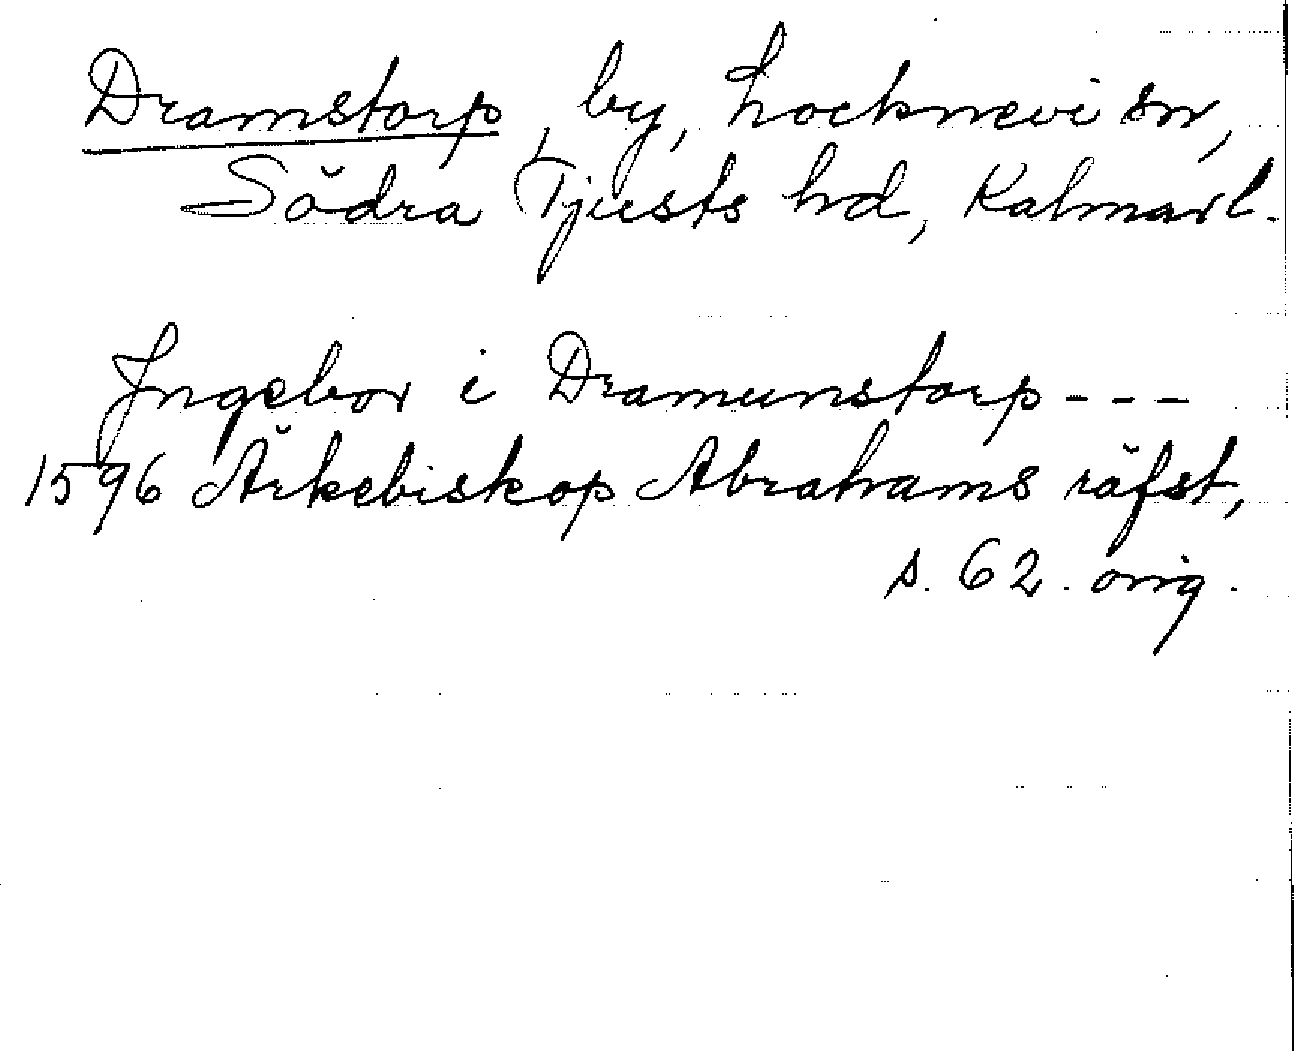 Dramstorp, by, Locknevi sn,
Södra Tjusts hd, Kalmarl.
Ingebor i Dramunstorp - - -
1596 Ärkebiskop Abrahams räfst,
s. 62. orig.